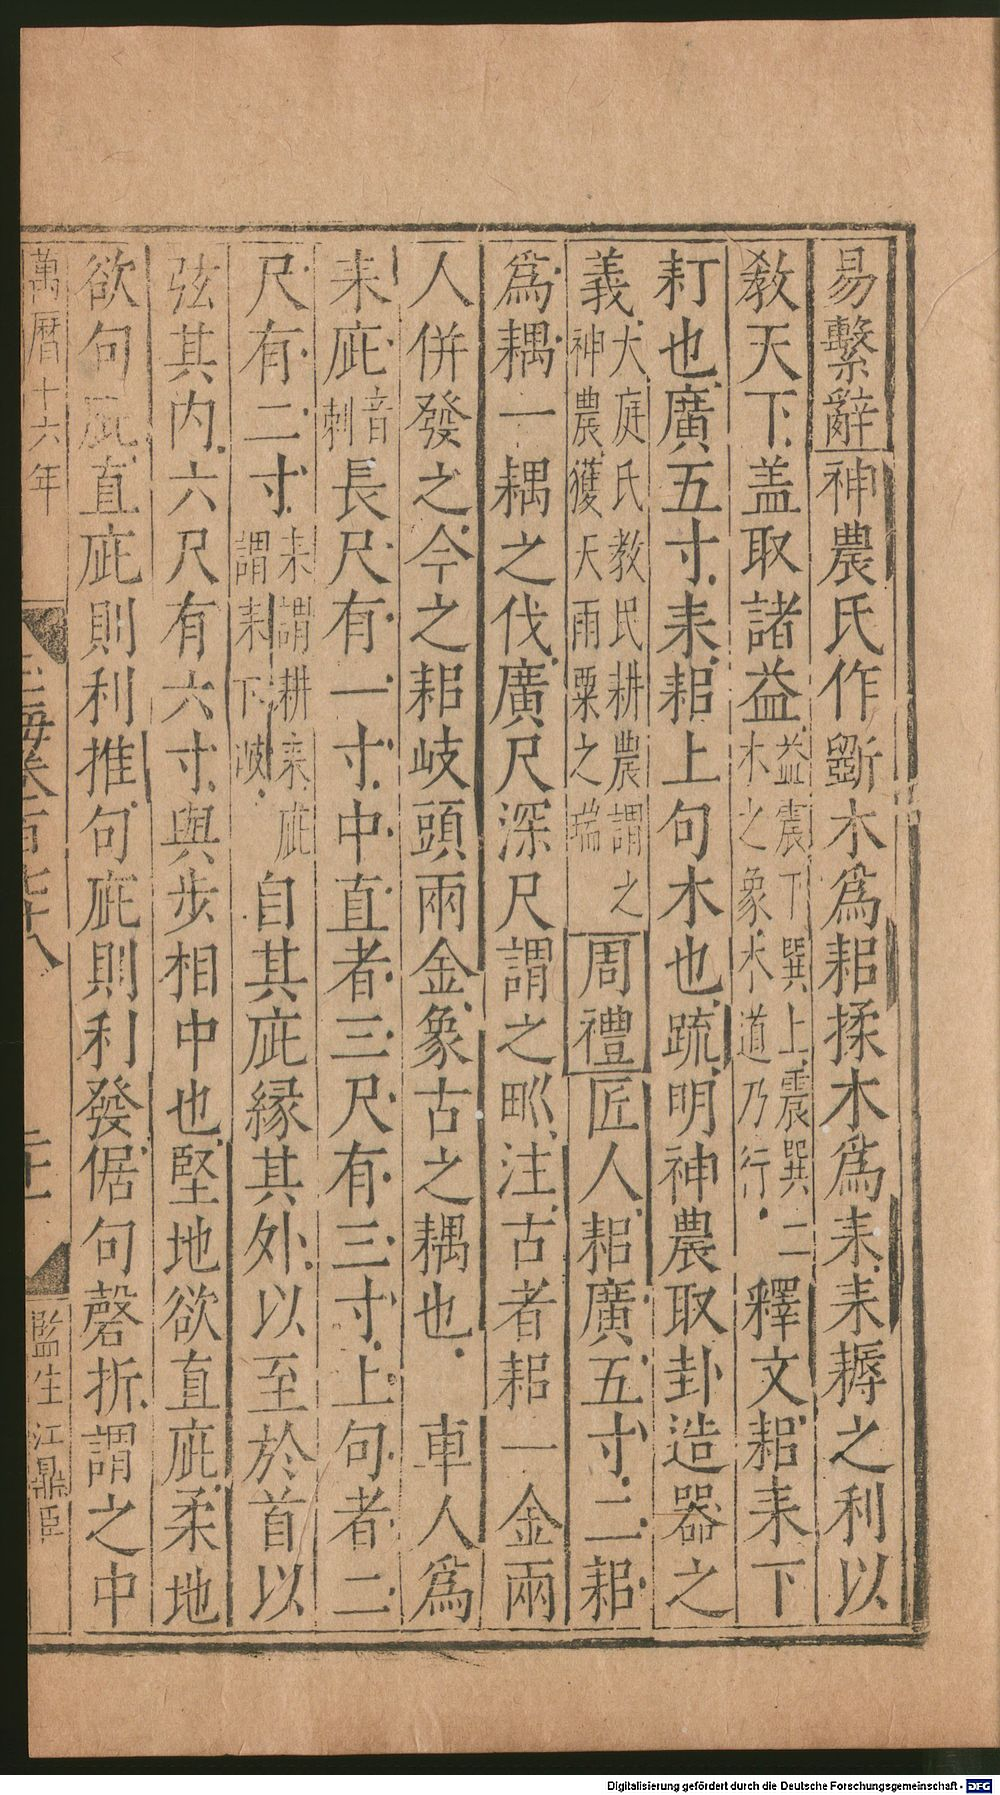 易繫辭神農氏作斲木爲耜揉木爲耒耒耨之利以
教天下蓋取諸益益震下巽上震巽二木之象木道乃行釋文耜耒下
耓也廣五寸耒耜上句木也疏明神農取卦造器之
義大庭氏教民耕農謂之神農獲天雨粟之瑞周禮匠人耜廣五寸二耜
爲耦一耦之伐廣尺深尺謂之𤰕注古者耜一金兩
人併發之今之耜岐頭兩金象古之耦也 車人爲
耒庛音刺長尺有一寸中直者三尺有三寸上句者二
尺有二寸耒謂耕耒庛謂耒下岐自其庛緣其外以至於首以
弦其內六尺有六寸與步相中也堅地欲直庛柔地
欲句庛直庛則利推句庛則利發倨句磬折謂之中
萬曆十六年
玉海卷一百七十八
二十一
監生江鼎臣
Digitalisierung gefördert durch die Deutsche Forschungsgemeinschaft - DFG